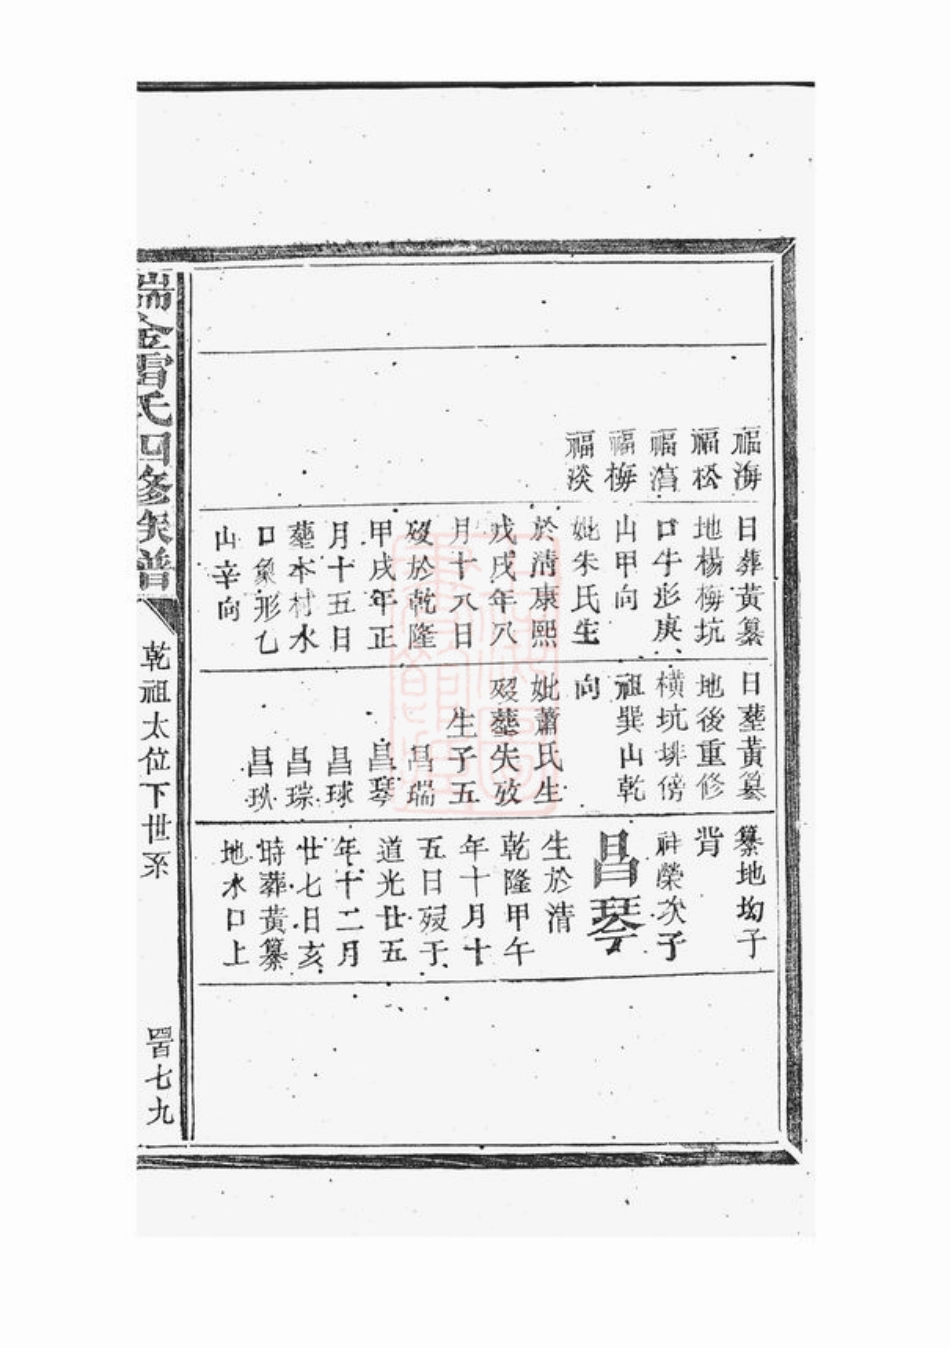 福海
福松
福㵆
福梅
福淡
日葬黃纂
地楊梅坑
口牛形庚
山甲向
妣朱氏生
於清康熙
戊戌年八
月十八日
歿於乾隆
甲戌年正
月十五日
塟本村水
口象形乙
山辛向
日塟黃纂
地後重修
橫坑排傍
祖巽山乾
向
妣蕭氏生
歿塟失攷
生子五
昌瑞
昌琴
昌球
昌琮
昌珖
纂地坳子
背
祥榮次子
昌琴
生於清
乾隆甲午
年十月十
五日歿于
道光廿五
年十二月
廿七日亥
時葬黃纂
地水口上
瑞金雷氏四修族譜
乾祖太位下世系
七九